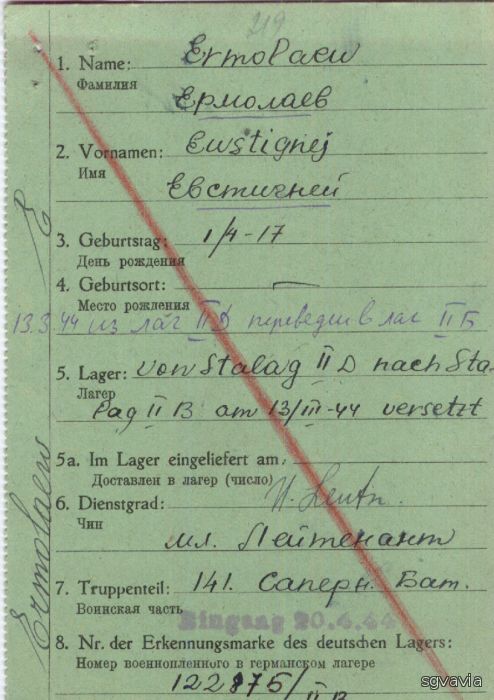 219
1. Name: Ermolaew
Фамилия
Ермолаев
2. Vornamen: Ewstignej
Имя
Евстигней
3. Geburtstag: 1/4-17
День рождения
4. Geburtsort: —
Место рождения
13.3.44 из лаг II D переведен в лаг II Б
5. Lager: von Stalag II D nach Sta-
Лагер
lag II B am 13/III-44 versetzt
5a. Im Lager eingeliefert am:
Доставлен в лагер (число)
6. Dienstgrad: U. Leutn.
Чин
мл. Лейтенант
7. Truppenteil: 141. Саперн. Бат.
Воинская часть
Eingang 20.4.44
8. Nr. der Erkennungsmarke des deutschen Lagers:
Номер военнопленного в германском лагере
122875/II B
E
Ermolaew
sgvavia